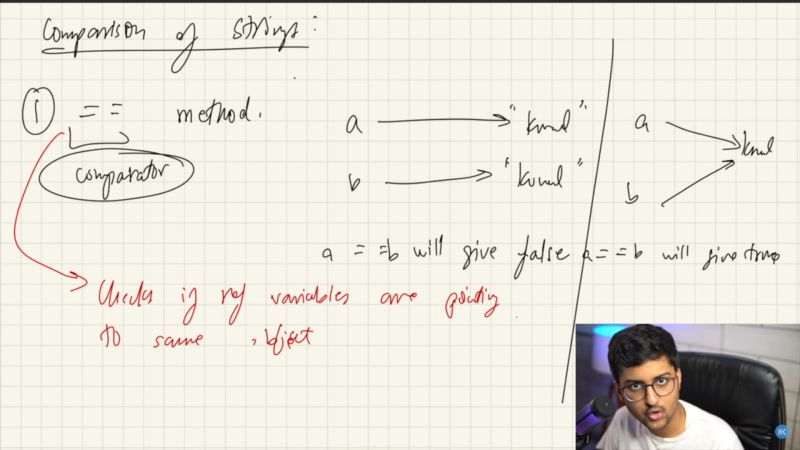 Comparison of Strings:
1 == method.
Comparator
a "kunal"
b "kunal"
a == b will give false
a
b
kunal
a == b will give true
Checks if ref variables are pointing
to same object